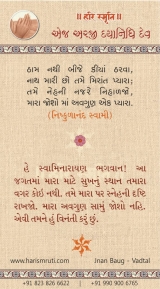 || હરિ સ્મૃતિ ||
એજ અરજી દયાનિધિ દેવ
ઠામ નથી બીજે કીયાં ઠરવા,
નાથ મારી છો તમે મિરાંત પ્યારા;
તમે નેહની નજરે નિહાળજો,
મારા જોશો માં અવગુણ એક પ્યારા.
(નિષ્કુળાનંદ સ્વામી)
હે સ્વામિનારાયણ ભગવાન! આ
જગતમાં મારા માટે સુખનું સ્થાન તમારા
વગર કોઈ નથી. તમે મારા પર સ્નેહની દૃષ્ટિ
રાખજો. મારા અવગુણ સામું જોશો નહિ.
એવી તમને હું વિનંતી કરું છું.
www.harismruti.com Jnan Baug – Vadtal
+91 823 826 6622 | +91 990 900 6765